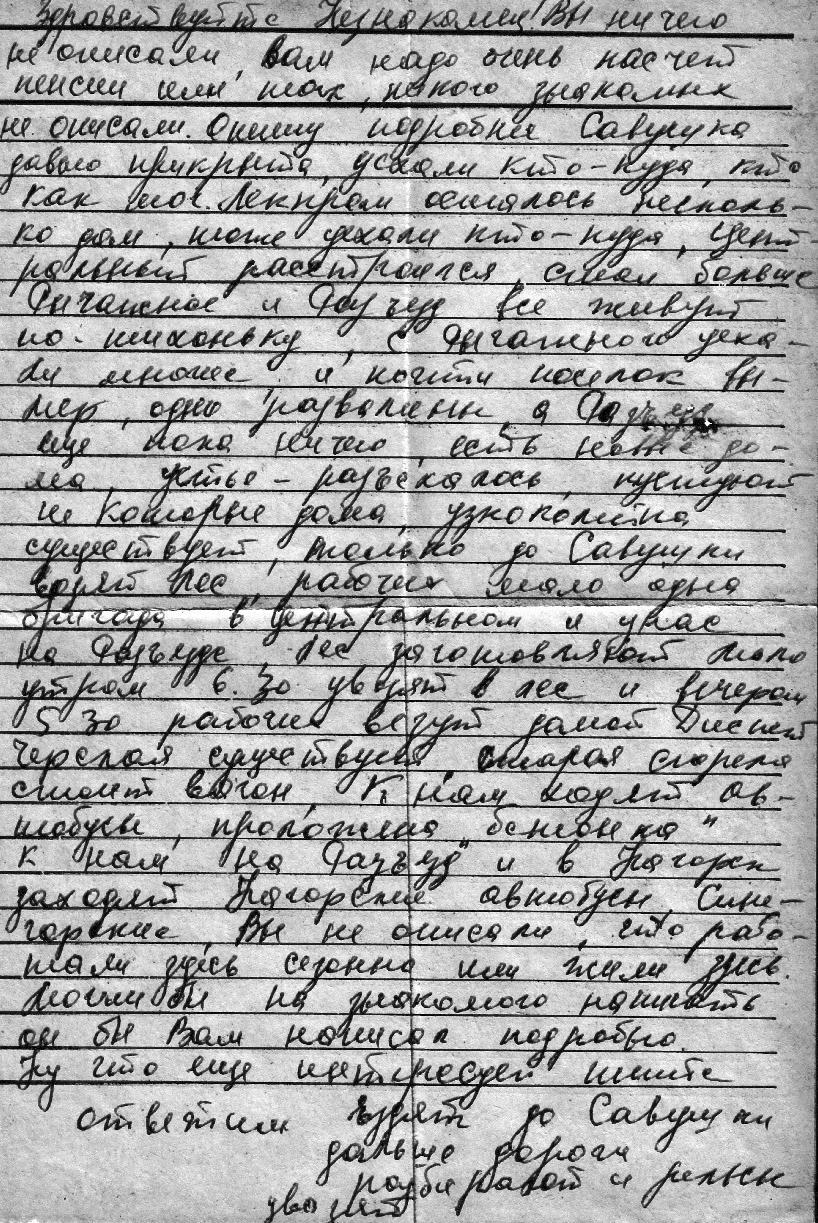 Здравствуйте Незнакомец! Вы ничего
не описали, вам надо очень насчет
пенсии или так, некого знакомых
не описали. Опишу подробнее Савушка
давно прикрыта, уехали кто-куда, кто
как мог. Лекпром осталось несколь-
ко дом, тоже уехали кто-куда, Цент-
ральный расстроился, стал больше
Рычажное и Разъезд все живут
по-тихоньку, с Рычажного уеха-
ли многие и почти поселок вы-
мер, одно развалины, а Разъезд
еще пока ничего, есть новые до-
ма, Устье - разъехалось, пустуют
не которые дома, узкоколейка
существует, только до Савушки
возят лес, рабочих мало одна
бригада в Центральном и у нас
на Разъезде, лес заготовляют мало
утром 6.30 увозят в лес и вечером
5 30 рабочих везут домой Диспет
черская существует, старая сгорела
стоит вагон, К нам ходят ав-
тобусы, проложена "бетонка"
к нам на "Разъезд" и в Нагорск
заходят Нагорские автобусы Сине-
горские, Вы не описали, что рабо-
тали здесь сезонно или жили здесь.
Могли бы на знакомого написать
он бы Вам написал подробно.
Ну что еще интересует пишите
ответим ездят до Савушки
дальше дороги
разбирают и рельсы
увозят